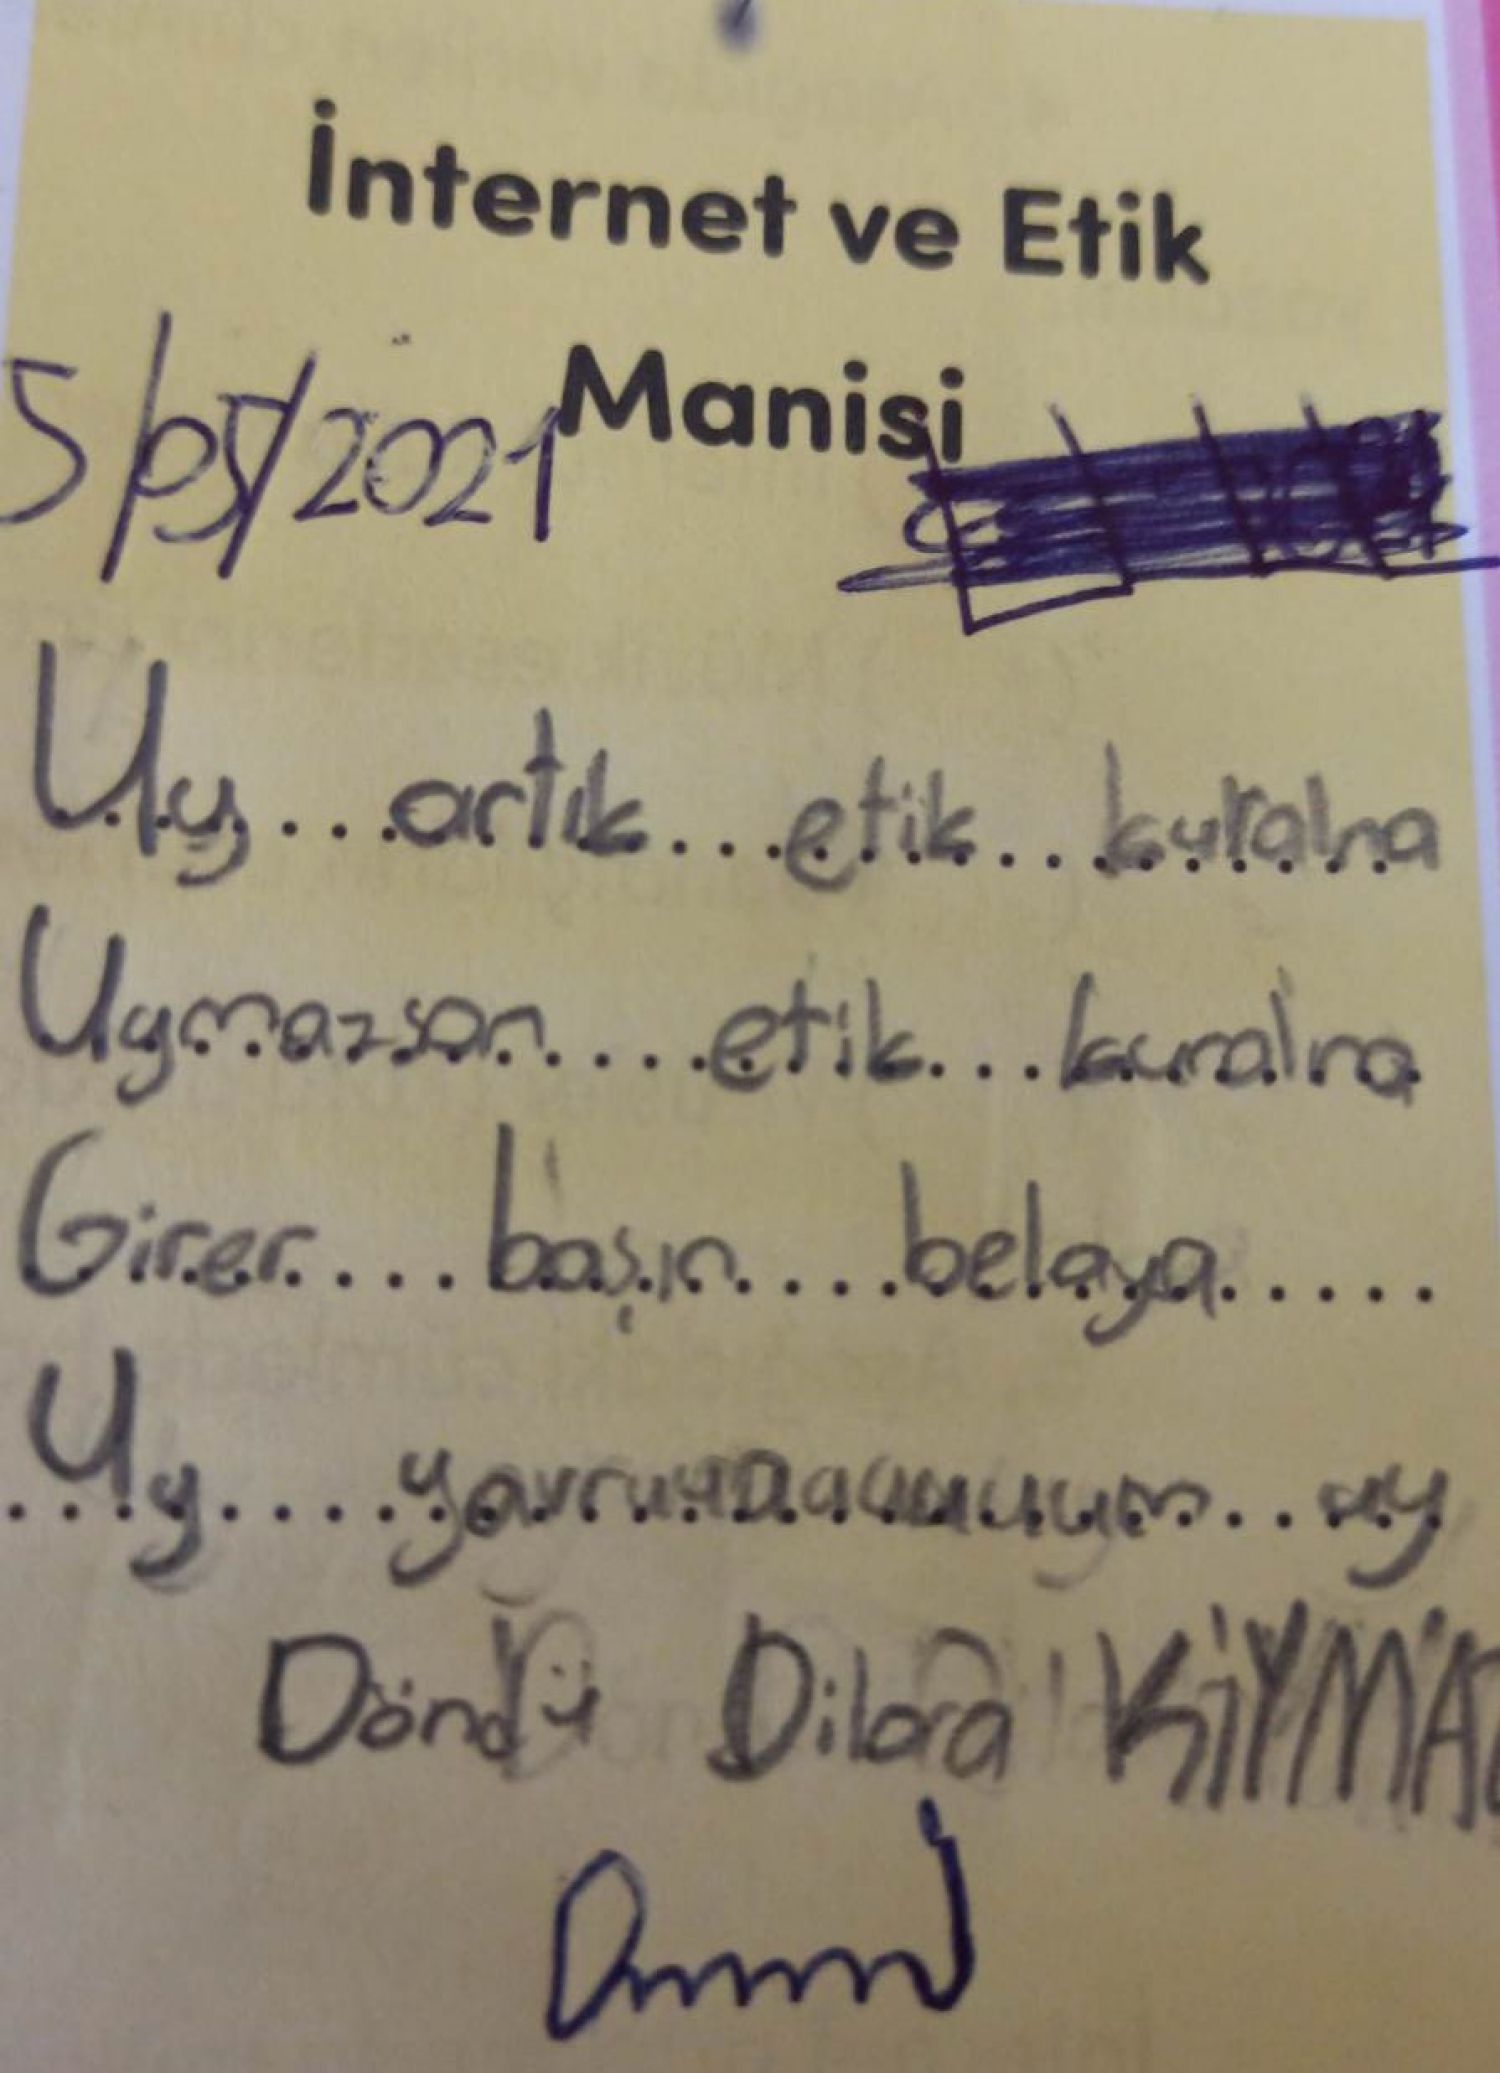 İnternet ve Etik
Manisi
5/05/2021
Uy artık etik kuralna
Uymazsan etik kuralna
Girer başın belaya
Uy uy
Döndü Dilara